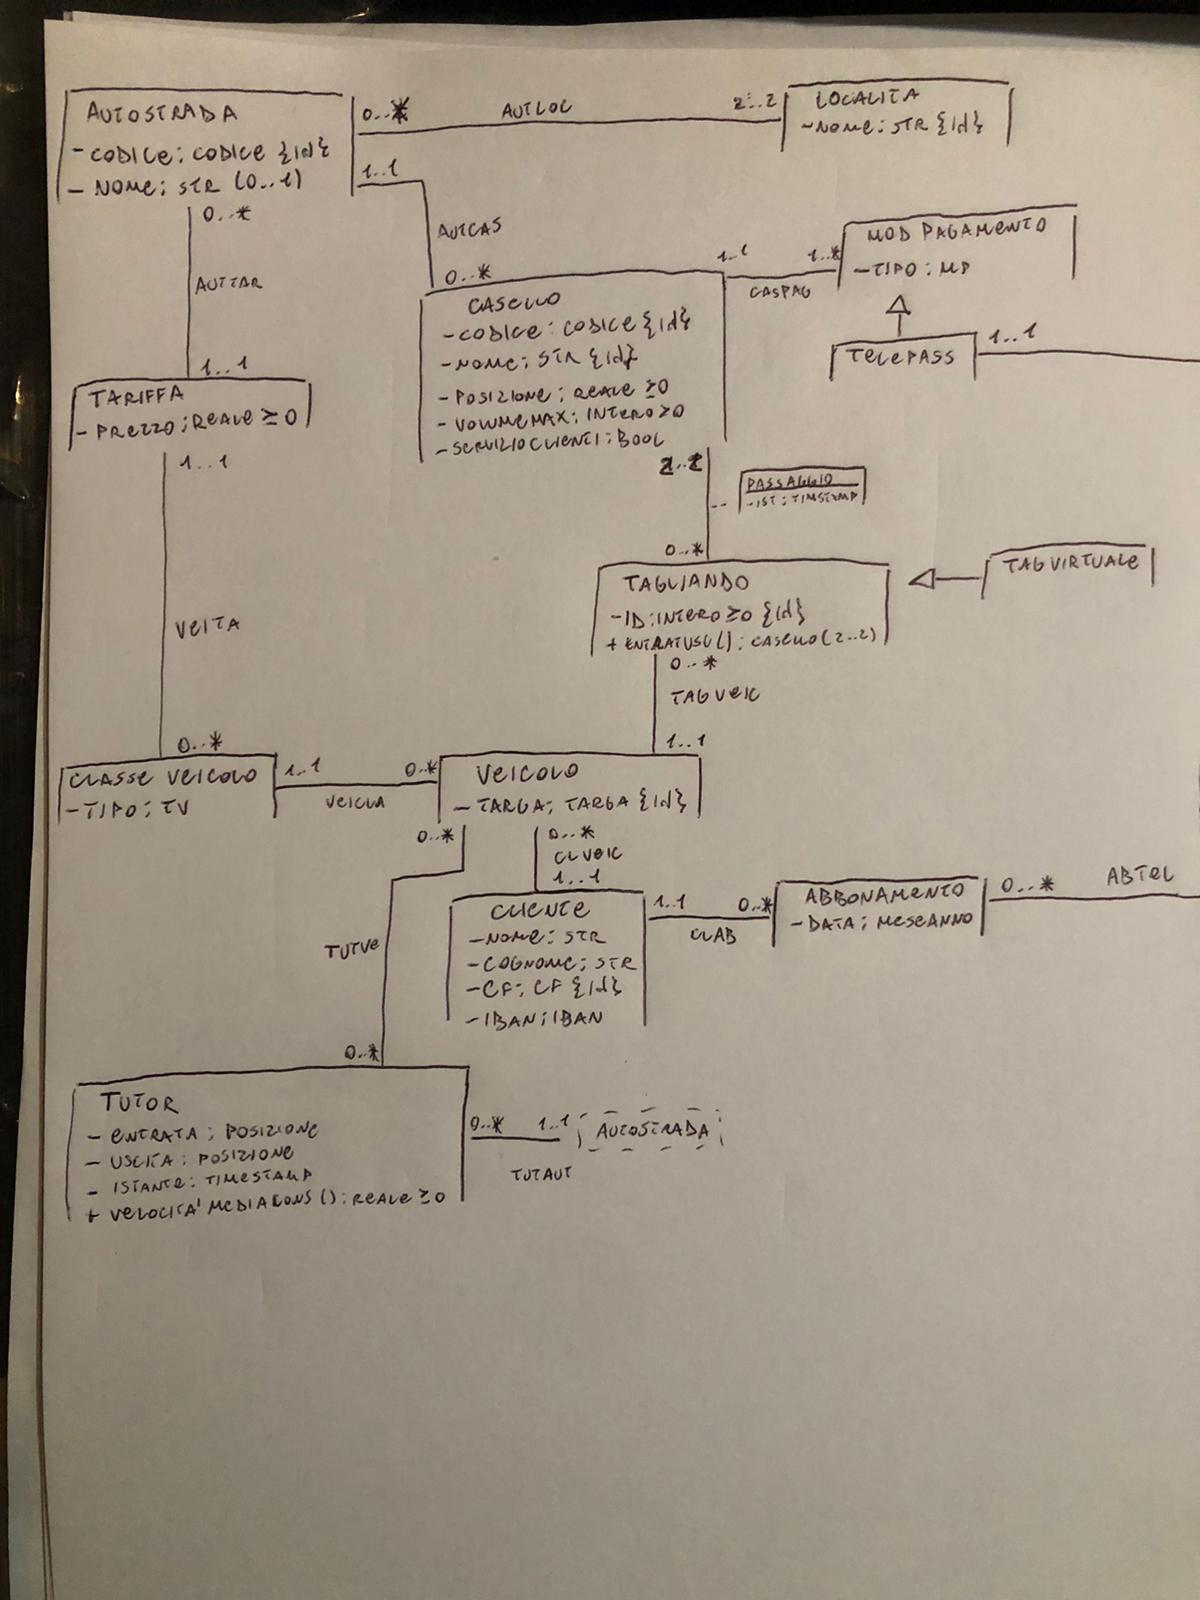 AUTOSTRADA
- CODICE: CODICE {Id}
- NOME: STR (0..1)
0..*
AUTLOC
2..2
LOCALITA
- NOME: STR {Id}
1..1
AUTCAS
0..*
0..*
AUTTAR
1..1
MOD PAGAMENTO
- TIPO: MP
1..1
1..*
CASPAG
TELEPASS
1..1
CASELLO
- CODICE: CODICE {Id}
- NOME: STR {Id}
- POSIZIONE: REALE ≥0
- VOLUMEMAX: INTERO >0
- SERVIZIOCLIENTI: BOOL
TARIFFA
- PREZZO: REALE ≥ 0
1..1
VEITA
0..*
2..2
PASSAGGIO
- IST: TIMSTAMP
0..*
TAGLIANDO
- ID: INTERO ≥0 {Id}
+ ENTRATUSC(): CASELLO(2..2)
TAGVIRTUALE
0..*
TAGVEIC
1..1
CLASSE VEICOLO
- TIPO: TV
1..1
0..*
VEICLA
VEICOLO
- TARGA: TARGA {Id}
0..*
0..*
CLVEIC
1..1
TUTVE
0..*
CLIENTE
- NOME: STR
- COGNOME: STR
- CF: CF {Id}
- IBAN: IBAN
1..1
0..*
CLAB
ABBONAMENTO
- DATA: MESEANNO
0..*
ABTEL
TUTOR
- ENTRATA: POSIZIONE
- USCITA: POSIZIONE
- ISTANTE: TIMESTAMP
+ VELOCITA'MEDIACONS(): REALE ≥0
0..*
1..1
TUTAUT
AUTOSTRADA